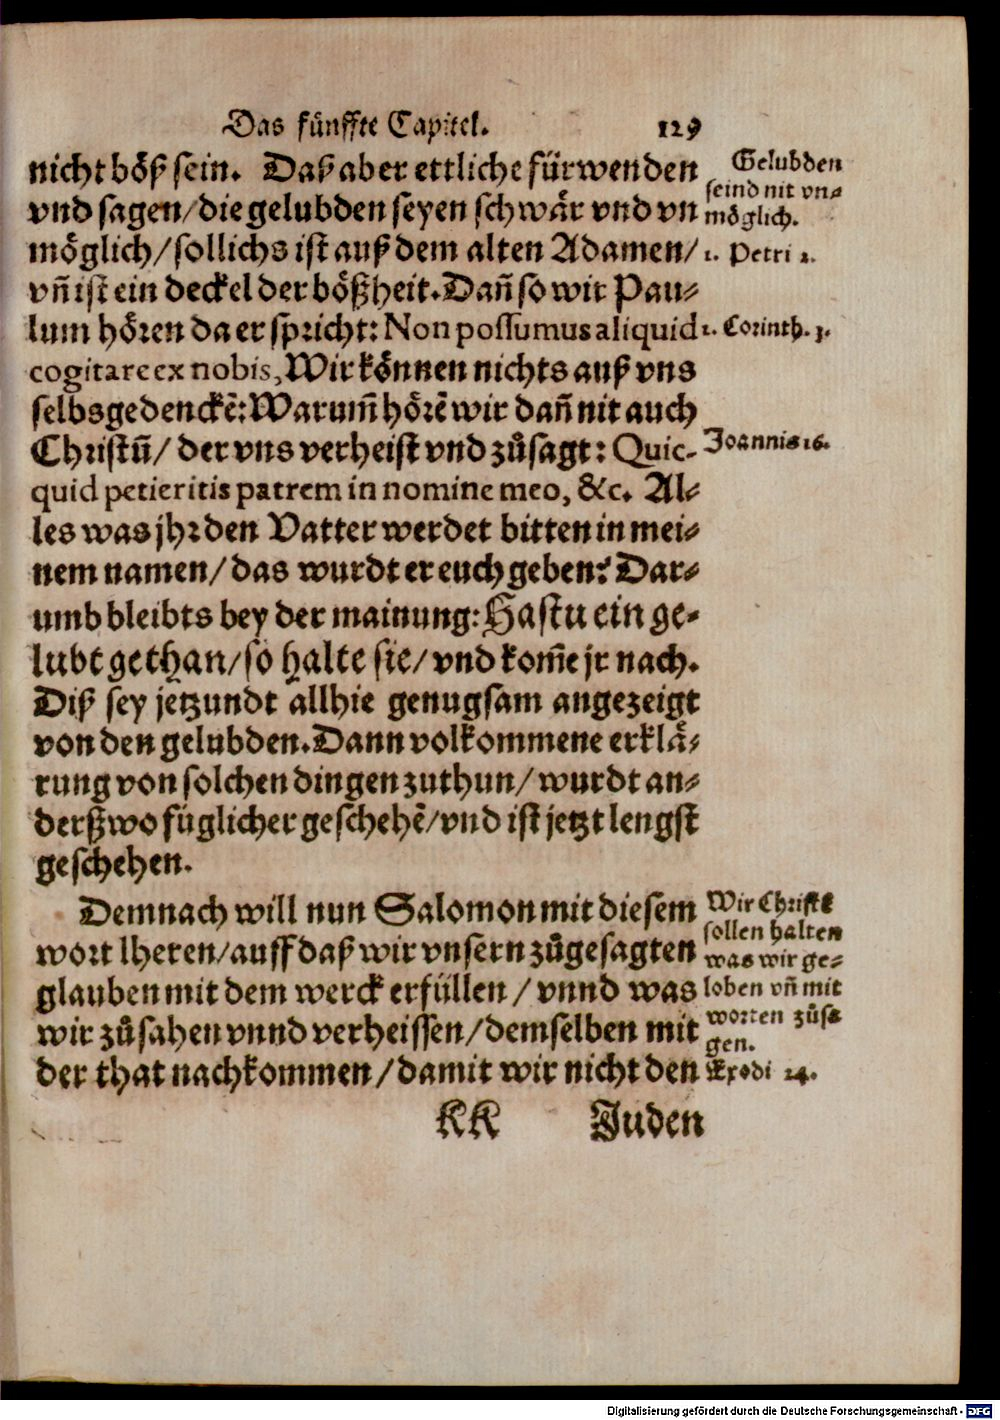 Das fünffte Capitel. 129
nicht böß sein. Daß aber ettliche fürwenden
vnd sagen/die gelubden seyen schwär vnd vn
möglich/sollichs ist auß dem alten Adamen/
vñ ist ein deckel der bößheit. Dañ so wir Pau-
lum hören da er spricht: Non possumus aliquid
cogitare ex nobis, Wir können nichts auß vns
selbs gedenckẽ: Warum̃ hörẽ wir dañ nit auch
Christũ/ der vns verheist vnd zůsagt: Quic-
quid petieritis patrem in nomine meo, &c. Al-
les was jhr den Vatter werdet bitten in mei-
nem namen/das wurdt er euch geben? Dar-
umb bleibts bey der mainung: Hastu ein ge-
lubt gethan/so halte sie/vnd kom̃e jr nach.
Diß sey jetzundt allhie genugsam angezeigt
von den gelubden. Dann volkommene erklä-
rung von solchen dingen zuthun/wurdt an-
derßwo füglicher geschehẽ/vnd ist jetzt lengst
geschehen.
Demnach will nun Salomon mit diesem
wort lheren/auff daß wir vnsern zůgesagten
glauben mit dem werck erfüllen/vnnd was
wir zůsahen vnnd verheissen/demselben mit
der that nachkommen/damit wir nicht den
KK Juden
Gelubden
seind nit vn-
möglich.
1. Petri 2.
2. Corinth. 3.
Joannis 16.
Wir Christẽ
sollen halten
was wir ge-
loben vñ mit
worten zůsa
gen.
Exodi 24.
Digitalisierung gefördert durch die Deutsche Forschungsgemeinschaft - DFG